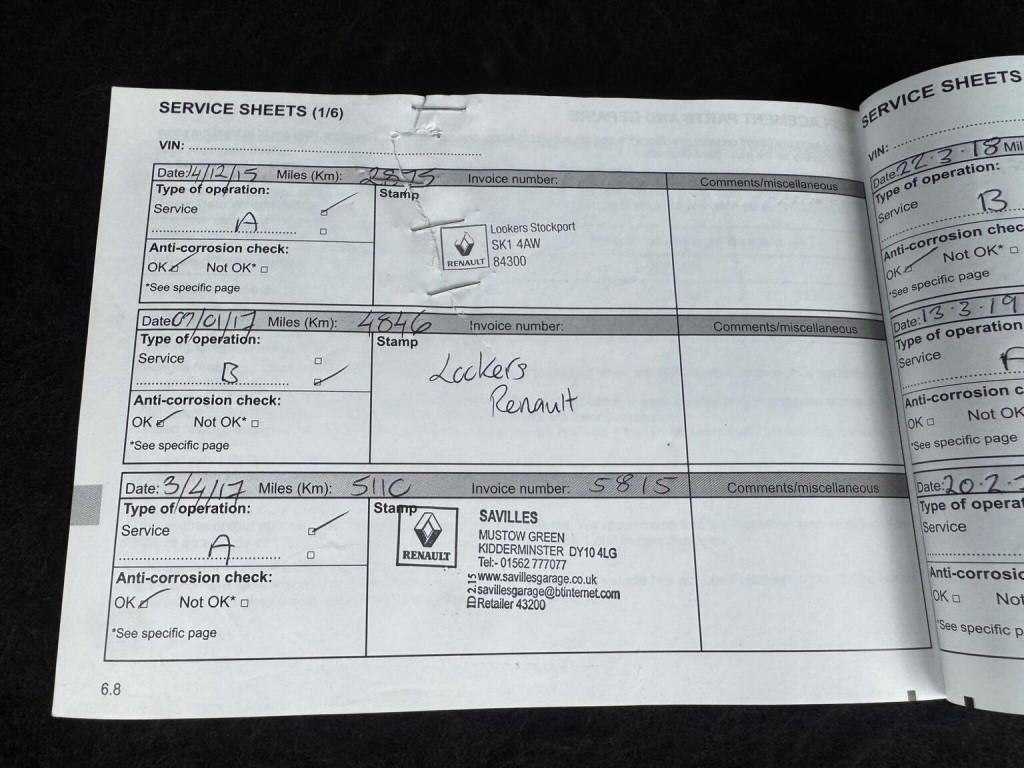 SERVICE SHEETS (1/6)
VIN:
Date: 4/12/15 Miles (Km): Invoice number: Comments/miscellaneous
Type of operation: Stamp
Service
A
Lookers Stockport
SK1 4AW
RENAULT 84300
Anti-corrosion check:
OK Not OK*
*See specific page
Date: 07/01/17 Miles (Km): 4846 Invoice number: Comments/miscellaneous
Type of operation: Stamp
Service
B
Lookers
Renault
Anti-corrosion check:
OK Not OK*
*See specific page
Date: 3/4/17 Miles (Km): 5110 Invoice number: 5815 Comments/miscellaneous
Type of operation: Stamp
Service
A
RENAULT
SAVILLES
MUSTOW GREEN
KIDDERMINSTER DY10 4LG
Tel:- 01562 777077
www.savillesgarage.co.uk
savillesgarage@btinternet.com
Retailer 43200
Anti-corrosion check:
OK Not OK*
*See specific page
6.8
SERVICE SHEETS
VIN:
Date: 22.3.18 Mil
Type of operation:
Service
B
Anti-corrosion chec
OK Not OK*
*See specific page
Date: 13.3.19
Type of operation
Service
A
Anti-corrosion c
OK Not OK
*See specific page
Date: 20.2.
Type of operat
Service
Anti-corrosio
OK Not
*See specific p